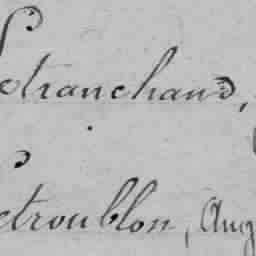 Letranchand,
Letroublon, Aug